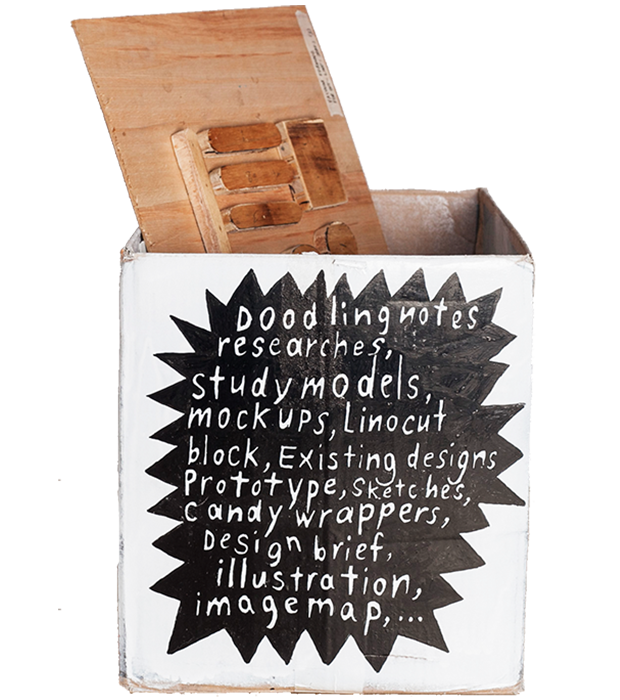 Doodling notes
researches,
study models,
mockups, Linocut
block, Existing designs
Prototype, sketches,
candy wrappers,
Design brief,
illustration,
imagemap,...